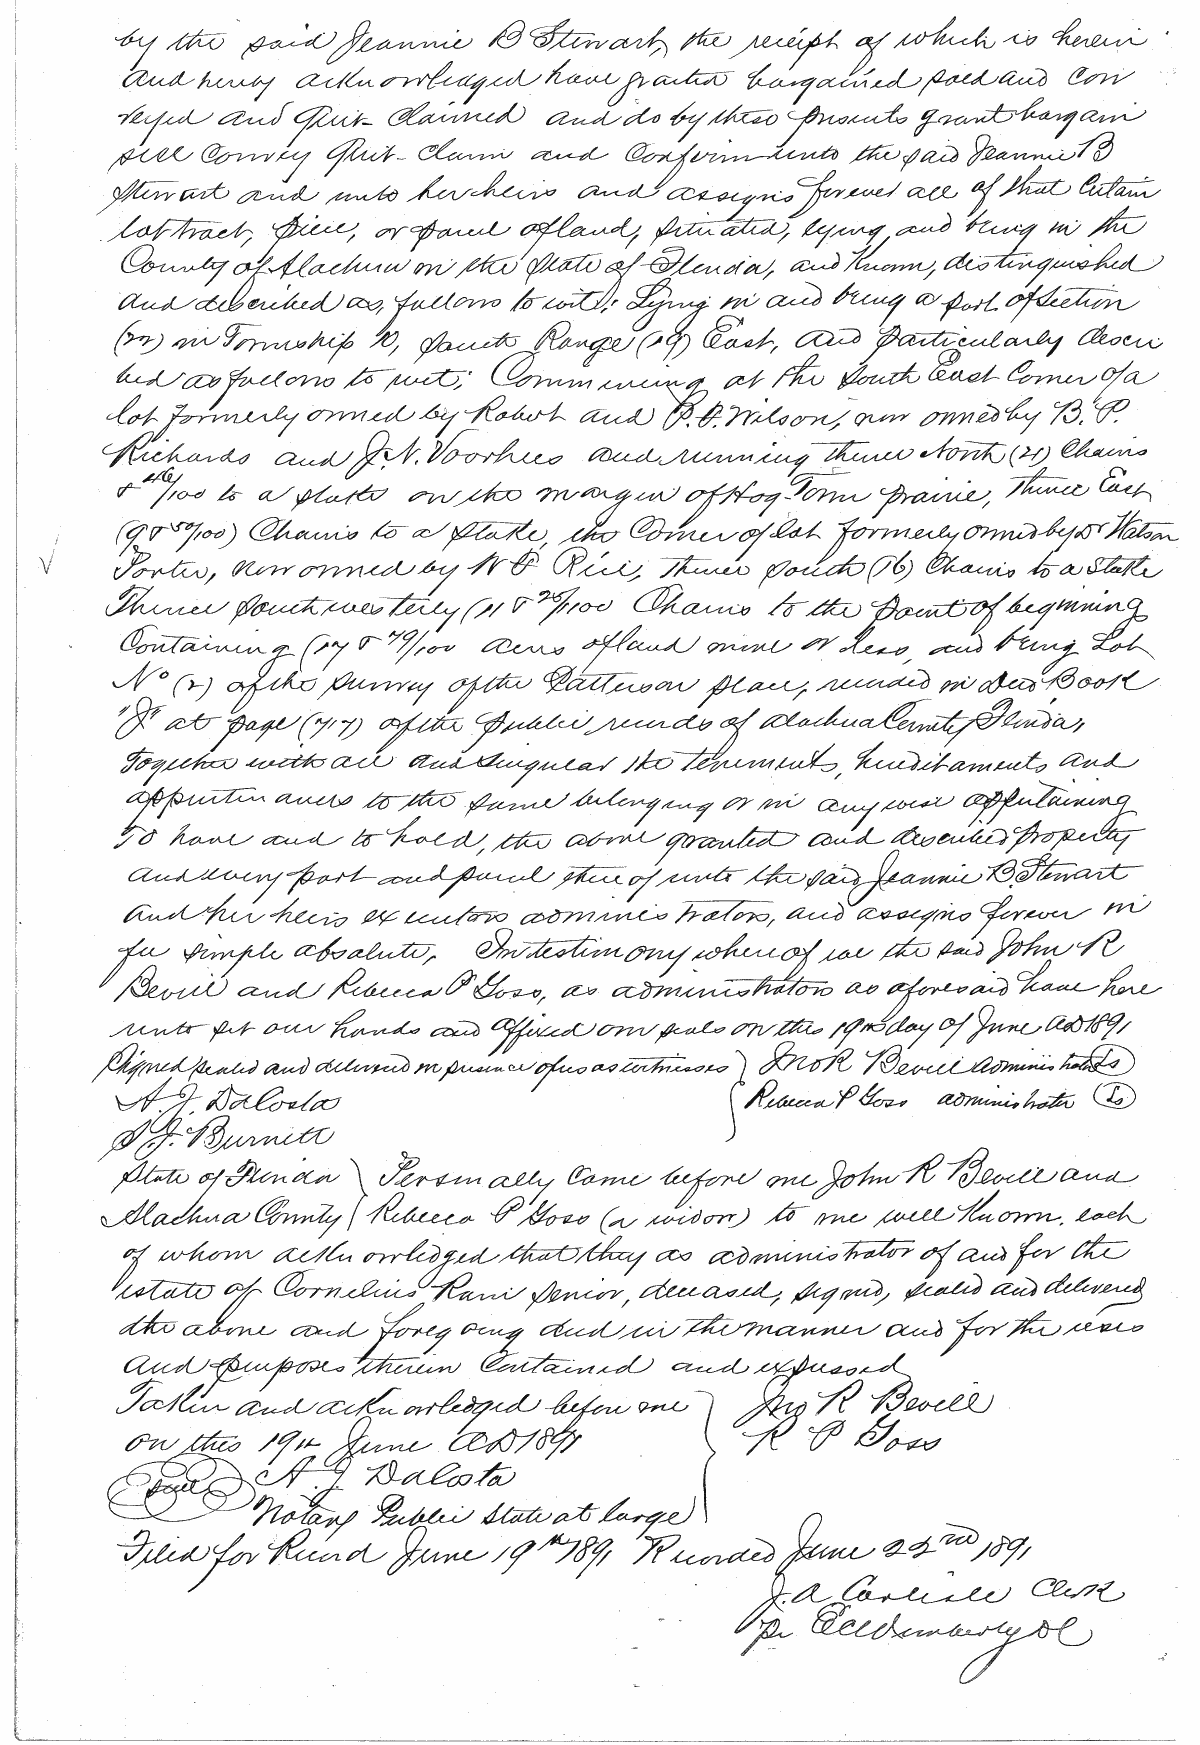 by the said Jeannie B Stewart, the receipt of which is herein
and hereby acknowledged have granted bargained sold and con
veyed and Quit-Claimed and do by these presents grant bargain
sell Convey Quit-Claim and Confirm unto the said Jeannie B
Stewart and unto her heirs and assigns forever all of that Certain
lot tract, piece, or parcel of land, situated, lying, and being in the
County of Alachua on the State of Florida, and Known, distinguished
and described as, follows to wit: Lying in and being a part of Section
in Township 10, South Range (19) East, and particularly descri
bed as follows to wit; Commencing at the South East Corner of a
lot formerly owned by Robert and P. P. Wilson, now owned by B. P.
Richards and J. N. Voorhees and running thence North (21) Chains
& 40/100 to a stake on the margin of Hog-Town prairie, thence East
(9 & 50/100) Chains to a stake, the Corner of lot formerly owned by Dr Watson
Porter, now owned by W P Rice, thence South (16) Chains to a stake
Thence South westerly (11 & 25/100 Chains to the point of beginning
Containing (17 & 79/100 acres of land more or less, and being Lot
No (2) of the survey of the Patterson place, recorded in Deed Book
at page (717) of the public records of Alachua County Florida,
Together with all and singular the tenements, hereditaments and
appurtenances to the same belonging or in anywise appertaining
To have and to hold, the above granted and described property
and every part and parcel thereof unto the said Jeannie B. Stewart
and her heirs executors administrators, and assigns forever in
fee simple absolute. In testimony whereof we the said John R
Bevill and Rebecca P Goss, as administrators as aforesaid have here
unto set our hands and affixed our seals on this 19th day of June AD 1891
Signed sealed and delivered in presence of us as witnesses } Jno R Bevill Administrator Ls
A. J. DaCosta Rebecca P Goss administrator Ls
S. J. Burnett
State of Florida } Personally Came before me John R Bevill and
Alachua County } Rebecca P Goss (a widow) to me well Known, each
of whom acknowledged that they as administrator of and for the
estate of Cornelius Rain Senior, deceased, signed, sealed and delivered
the above and foregoing deed in the manner and for the uses
and purposes therein Contained and expressed
Taken and acknowledged before me } Jno R Bevill
on this 19th June AD 1891 R P Goss
Seal A J DaCosta
Notary Public State at large
Filed for Record June 19th 1891 Recorded June 22nd 1891
J. A. Carlisle Clerk
pr DC